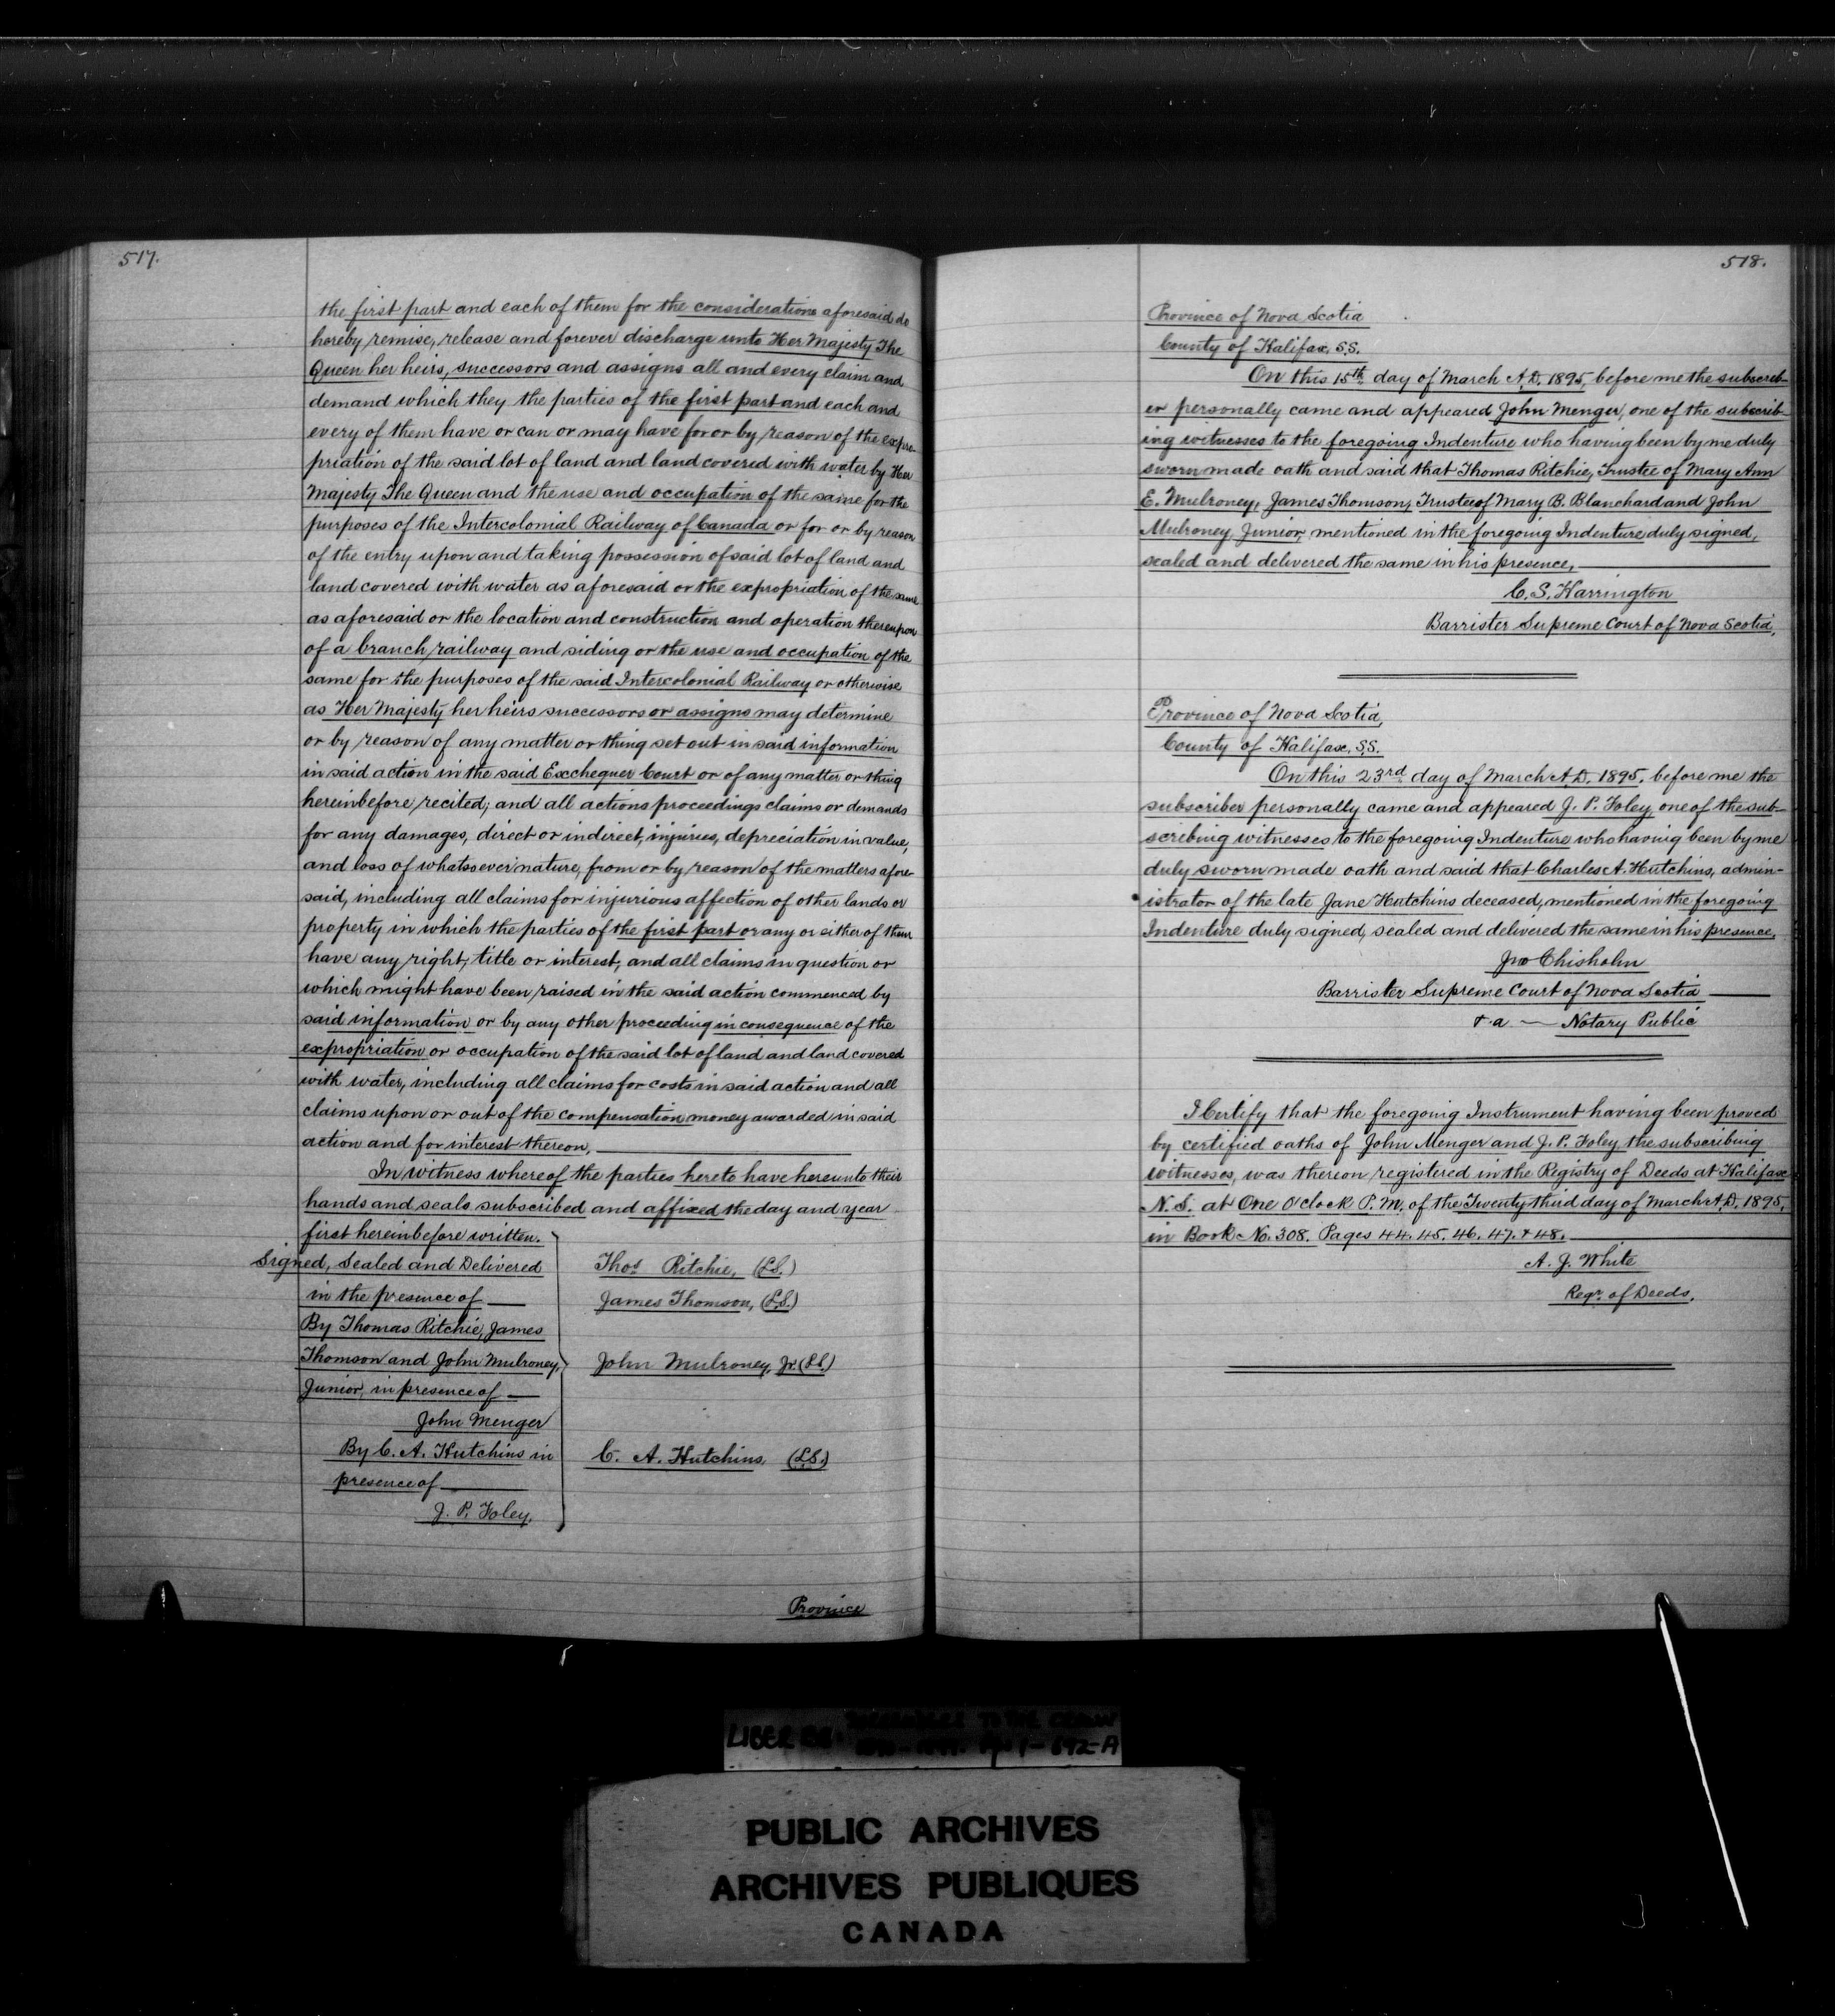 517.
the first part and each of them for the considerations aforesaid do
hereby remise, release and forever discharge unto Her Majesty The
Queen her heirs, successors and assigns all and every claim and
demand which they the parties of the first part and each and
every of them have or can or may have for or by reason of the expro-
priation of the said lot of land and land covered with water by Her
Majesty The Queen and the use and occupation of the same for the
purposes of the Intercolonial Railway of Canada or for or by reason
of the entry upon and taking possession of said lot of land and
land covered with water as aforesaid or the expropriation of the same
as aforesaid or the location and construction and operation thereupon
of a branch railway and siding or the use and occupation of the
same for the purposes of the said Intercolonial Railway or otherwise
as Her Majesty her heirs successors or assigns may determine
or by reason of any matter or thing set out in said information
in said action in the said Exchequer Court or of any matter or thing
hereinbefore recited; and all actions proceedings claims or demands
for any damages, direct or indirect, injuries, depreciation in value,
and loss of whatsoever nature, from or by reason of the matters afore-
said, including all claims for injurious affection of other lands or
property in which the parties of the first part or any or either of them
have any right, title or interest, and all claims in question or
which might have been raised in the said action commenced by
said information or by any other proceeding in consequence of the
expropriation or occupation of the said lot of land and land covered
with water, including all claims for costs in said action and all
claims upon or out of the compensation money awarded in said
action and for interest thereon.
In witness whereof the parties hereto have hereunto their
hands and seals subscribed and affixed the day and year
first hereinbefore written.
Signed, Sealed and Delivered
in the presence of
By Thomas Ritchie, James
Thomson and John Mulroney,
Junior, in presence of
John Menger
By C. A. Hutchins in
presence of
J. P. Foley.
Thos Ritchie, (L.S.)
James Thomson, (L.S.)
John Mulroney, Jr. (L.S.)
C. A. Hutchins. (L.S.)
Province
518.
Province of Nova Scotia
County of Halifax, S.S.
On this 15th day of March A.D. 1895, before me the subscrib-
er personally came and appeared John Menger, one of the subscrib-
ing witnesses to the foregoing Indenture who having been by me duly
sworn made oath and said that Thomas Ritchie, Trustee of Mary Ann
E. Mulroney, James Thomson, Trustee of Mary B. Blanchard and John
Mulroney, Junior, mentioned in the foregoing Indenture duly signed,
sealed and delivered the same in his presence,
C. S. Harrington
Barrister Supreme Court of Nova Scotia,
Province of Nova Scotia,
County of Halifax, S.S.
On this 23rd day of March A.D. 1895, before me the
subscriber personally came and appeared J. P. Foley one of the sub-
scribing witnesses to the foregoing Indenture who having been by me
duly sworn made oath and said that Charles A. Hutchins, admin-
istrator of the late Jane Hutchins deceased, mentioned in the foregoing
Indenture duly signed, sealed and delivered the same in his presence,
Jno Chisholm
Barrister Supreme Court of Nova Scotia
& a — Notary Public
I Certify that the foregoing Instrument having been proved
by certified oaths of John Menger and J. P. Foley the subscribing
witnesses, was thereon registered in the Registry of Deeds at Halifax
N.S. at One O'clock P.M. of the Twenty third day of March A.D. 1895,
in Book No. 308. Pages 44. 45. 46. 47. & 48.
A. J. White
Regr. of Deeds.
LIBER
PUBLIC ARCHIVES
ARCHIVES PUBLIQUES
CANADA